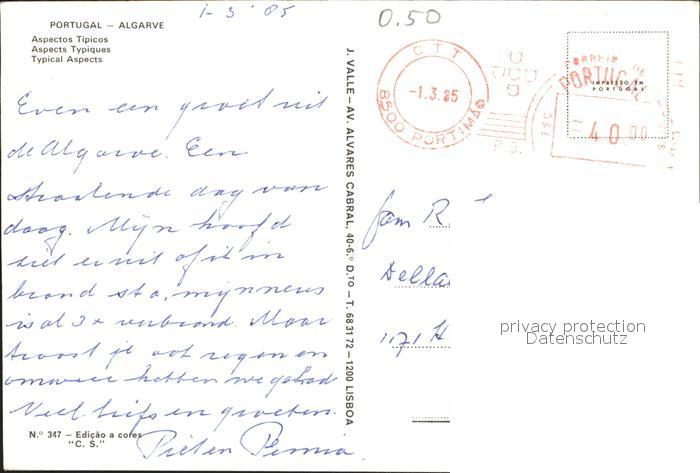 1-3-'85
0.50
PORTUGAL – ALGARVE
Aspectos Típicos
Aspects Typiques
Typical Aspects
Even een groet uit
de Algarve. Een
stralende dag van
daag. Mijn hoofd
ziet er uit of it in
brand sta, mijn neus
is al 3x verbrand. Maar
troost je ook regen en
onweer hebben we gehad
Veel liefs en groeten.
Pieter
N.º 347 – Edição a cores
"C. S."
J. VALLE – AV. ALVARES CABRAL, 40-6.º D.TO – T. 683172 – 1200 LISBOA
CTT
-1.3.85
8500 PORTIMÃO
P.B.
PORTUGAL
IMPRESSO EM
PORTUGAL
ESC
40.00
fam R.
Della
1171 H
privacy protection
Datenschutz